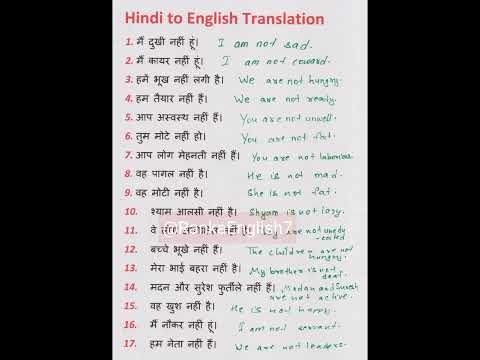 Hindi to English Translation
1. मैं दुखी नहीं हूं। I am not sad.
2. मैं कायर नहीं हूं। I am not coward.
3. हमे भूख नहीं लगी है। We are not hungry.
4. हम तैयार नहीं हैं। We are not ready.
5. आप अस्वस्थ नहीं हैं। You are not unwell.
6. तुम मोटे नहीं हो। You are not fat.
7. आप लोग मेहनती नहीं हैं। You are not laborious
8. वह पागल नहीं है। He is not mad.
9. वह मोटी नहीं है। She is not fat.
10. श्याम आलसी नहीं है। Shyam is not lazy.
11. वे नहीं are not unedu
-cated
12. बच्चे भूखे नहीं हैं। The children are not
hungry.
13. मेरा भाई बहरा नहीं है। My brother is not
deaf.
14. मदन और सुरेश फुर्तीले नहीं हैं। Madan and Suresh
are not active.
15. वह खुश नहीं है। He is not happy.
16. मैं नौकर नहीं हूं। I am not servant.
17. हम नेता नहीं हैं। We are not leaders.